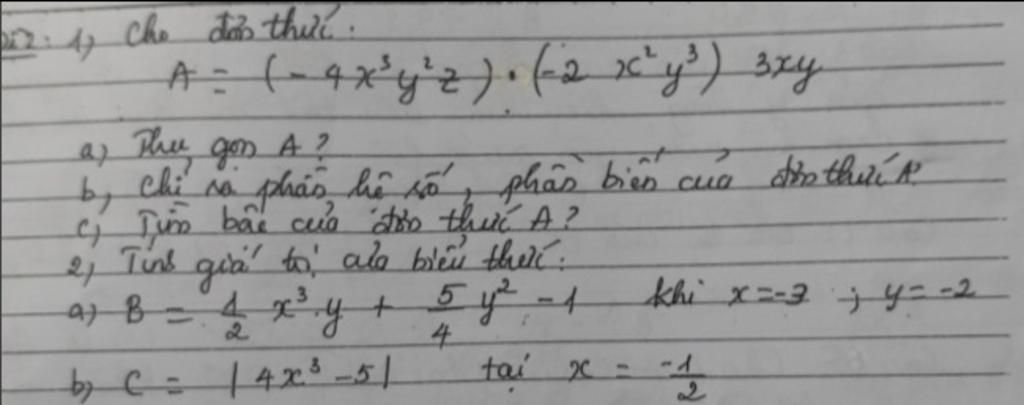 Bài 2: 1, Cho đơn thức:
A = (-4x³y²z) . (-2 x²y³) 3xy
a) Thu gọn A?
b, Chỉ ra phần hệ số, phần biến của đơn thức A.
c, Tìm bậc của đơn thức A?
2, Tính giá trị của biểu thức:
a) B = 1/2 x³.y + 5/4 y² - 1 khi x = -3 ; y = -2
b) C = |4x³ - 5| tại x = -1/2